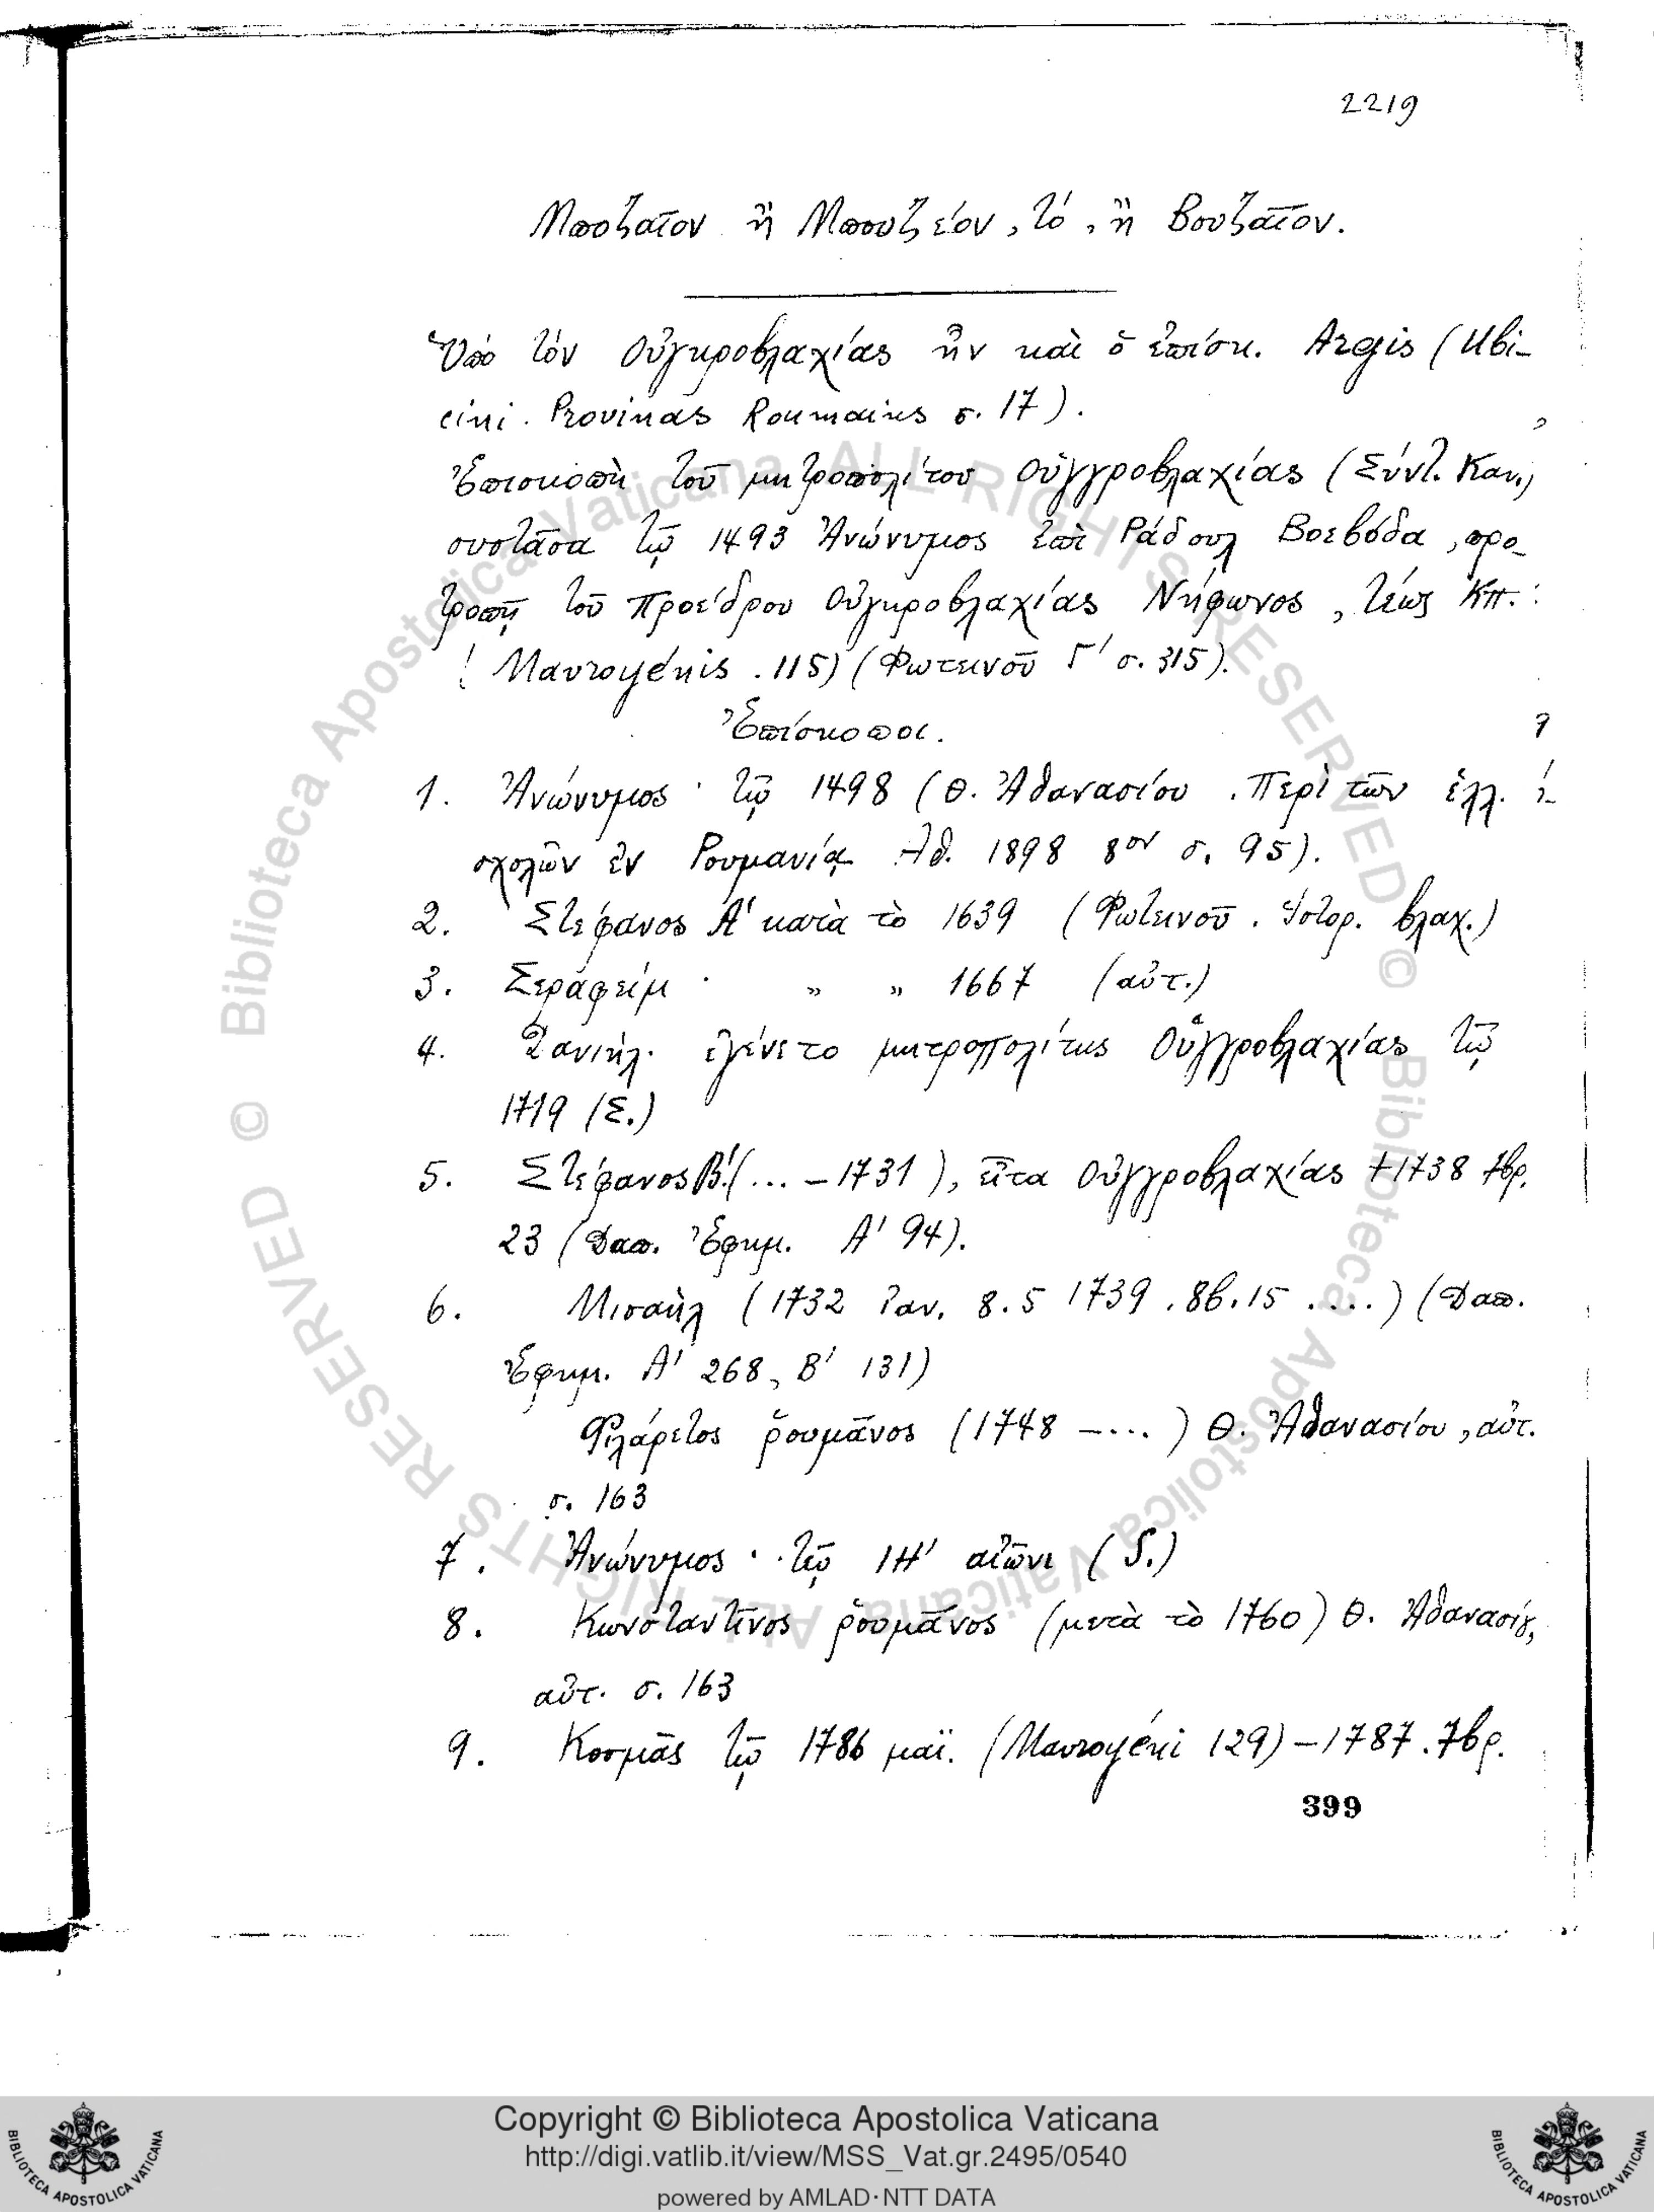 2219
Μποζαῖον ἢ Μπουζέον, τό, ἢ Βουζαῖον.
Ὑπὸ τὸν Οὐγκροβλαχίας ἦν καὶ ὁ ἐπίσκ. Argis (Ubi-
cini. Provinces Roumaines σ. 17).
Ἐπισκοπὴ τοῦ μητροπολίτου Οὐγγροβλαχίας (Σύντ. Καν.)
συστᾶσα τῷ 1493 Ἀνώνυμος ἐπὶ Ράδουλ Βοεβόδα, προ-
τροπῇ τοῦ Προέδρου Οὐγκροβλαχίας Νήφωνος, τέως Κπ.
Mavroyénis. 115) (Φωτεινοῦ Γ' σ. 315).
Ἐπίσκοποι.
1. Ἀνώνυμος· τῷ 1498 (Θ. Ἀθανασίου. Περὶ τῶν ἑλλ.
σχολῶν ἐν Ρουμανίᾳ Ἀθ. 1898 8ον σ. 95).
2. Στέφανος Α' κατὰ τὸ 1639 (Φωτεινοῦ. Ἱστορ. Βλαχ.)
3. Σεραφείμ · » » 1667 (αὐτ.)
4. Δανιήλ. ἐγένετο μητροπολίτης Οὐγγροβλαχίας τῷ
1719 (Σ.)
5. Στέφανος Β'. (... – 1731), εἶτα Οὐγγροβλαχίας +1738 7βρ.
23 (Δαπ. Ἐφημ. Α' 94).
6. Μισαὴλ (1732 Ἰαν. 8.5 1739. 8β. 15 ....) (Δαπ.
Ἐφημ. Α' 268, Β' 131)
Φιλάρετος ῥουμᾶνος (1748 – ...) Θ. Ἀθανασίου, αὐτ.
σ. 163
7. Ἀνώνυμος · τῷ ΙΗ' αἰῶνι (S.)
8. Κωνσταντῖνος ῥουμᾶνος (μετὰ τὸ 1760) Θ. Ἀθανασίου,
αὐτ. σ. 163
9. Κοσμᾶς τῷ 1786 μαϊ. (Mavroyéni 129) – 1787. 7βρ.
399
© Biblioteca Apostolica Vaticana ALL RIGHTS RESERVED © Biblioteca Apostolica Vaticana ALL RIGHTS RESERVED
Copyright © Biblioteca Apostolica Vaticana
http://digi.vatlib.it/view/MSS_Vat.gr.2495/0540
powered by AMLAD·NTT DATA
BIBLIOTECA APOSTOLICA VATICANA
BIBLIOTECA APOSTOLICA VATICANA